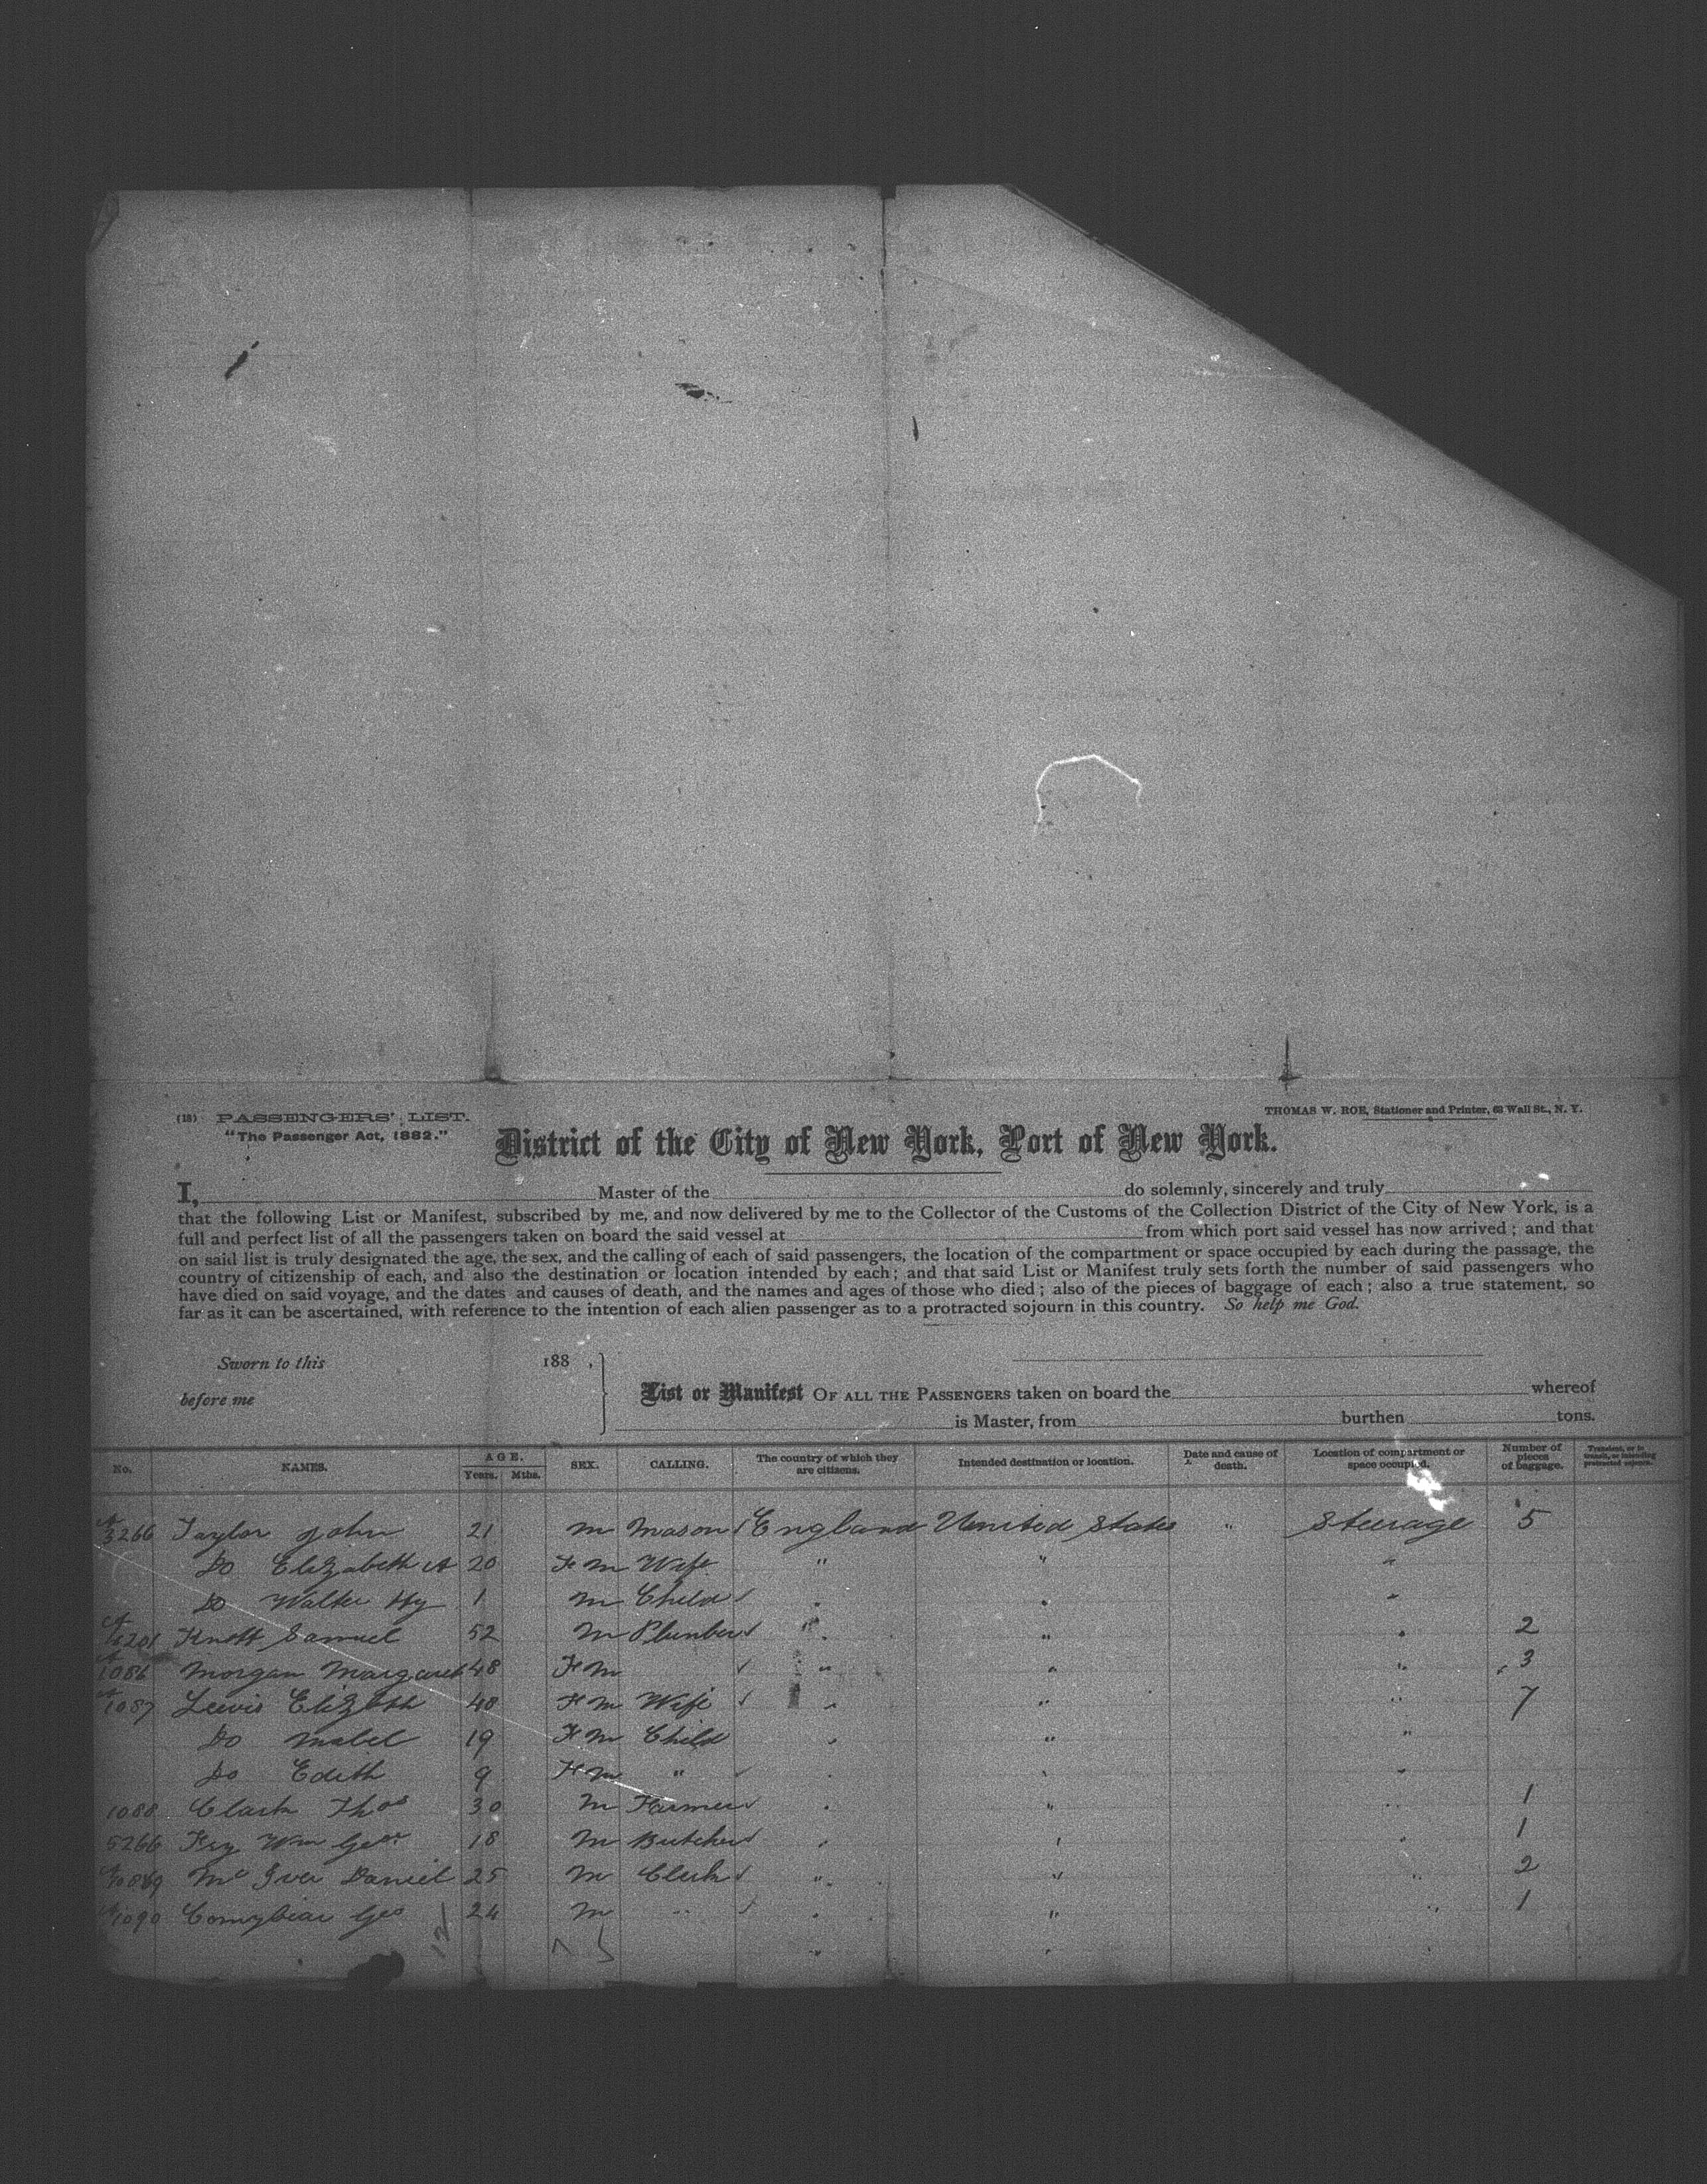 (18) PASSENGERS' LIST.
THOMAS W. ROE, Stationer and Printer, 63 Wall St., N. Y.
"The Passenger Act, 1882."
District of the City of New York, Port of New York.
I, Master of the do solemnly, sincerely and truly
that the following List or Manifest, subscribed by me, and now delivered by me to the Collector of the Customs of the Collection District of the City of New York, is a
full and perfect list of all the passengers taken on board the said vessel at from which port said vessel has now arrived ; and that
on said list is truly designated the age, the sex, and the calling of each of said passengers, the location of the compartment or space occupied by each during the passage, the
country of citizenship of each, and also the destination or location intended by each ; and that said List or Manifest truly sets forth the number of said passengers who
have died on said voyage, and the dates and causes of death, and the names and ages of those who died ; also of the pieces of baggage of each ; also a true statement, so
far as it can be ascertained, with reference to the intention of each alien passenger as to a protracted sojourn in this country. So help me God.
Sworn to this 188 ,
before me
List or Manifest OF ALL THE PASSENGERS taken on board the whereof
is Master, from burthen tons.
No. NAMES. AGE. Years. Mths. SEX. CALLING. The country of which they are citizens. Intended destination or location. Date and cause of death. Location of compartment or space occupied. Number of pieces of baggage. Transient, or in transit, or intending protracted sojourn.
3266 Taylor John 21 m Mason England United States " Steerage 5
Do Elizabeth A 20 Fm Wife " " "
Do Walter Hy 1 m Child " " "
Knott Samuel 52 m Plumber " " " 2
1086 Morgan Margaret 48 Fm " " " 3
1087 Lewis Elizbth 40 Fm Wife " " " 7
Do Mabel 19 Fm Child " " "
Do Edith 9 Fm " " " "
1088 Clark Thos 30 m Farmer " " " 1
5266 Wm Geo 18 m Butcher " " " 1
Mc Iver Daniel 25 m Clerk " " " 2
1090 Geo 24 m " " " " 1
12